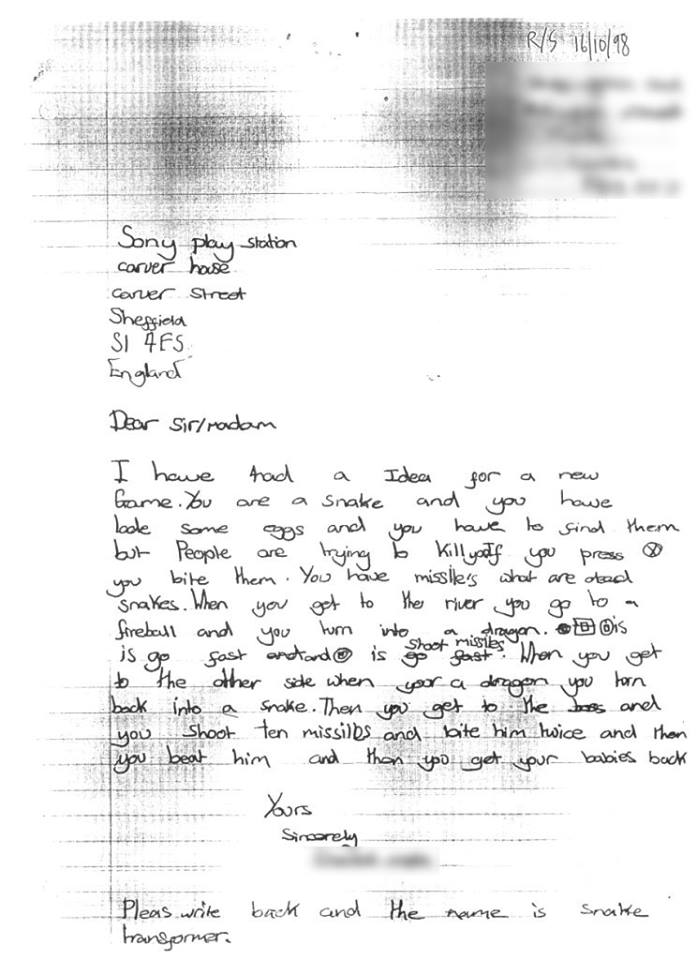 R/S 16/10/98
Sony play station
carver house
carver Street
Sheffield
S1 4FS
England
Dear Sir/madam
I have had a Idea for a new
Game. You are a snake and you have
lade some eggs and you have to find them
but People are trying to kill you If you press Ⓧ
you bite them. You have missiles what are dead
snakes. When you get to the river you go to a
fireball and you turn into a dragon. is
is go fast and is shoot missiles. When you get
to the other side when your a dragon you turn
back into a snake. Then you get to the boss and
you shoot ten missilbs and bite him twice and then
you beat him and then you get your babies back
Yours
Sincerely
Pleas write back and the name is snake
transformer.